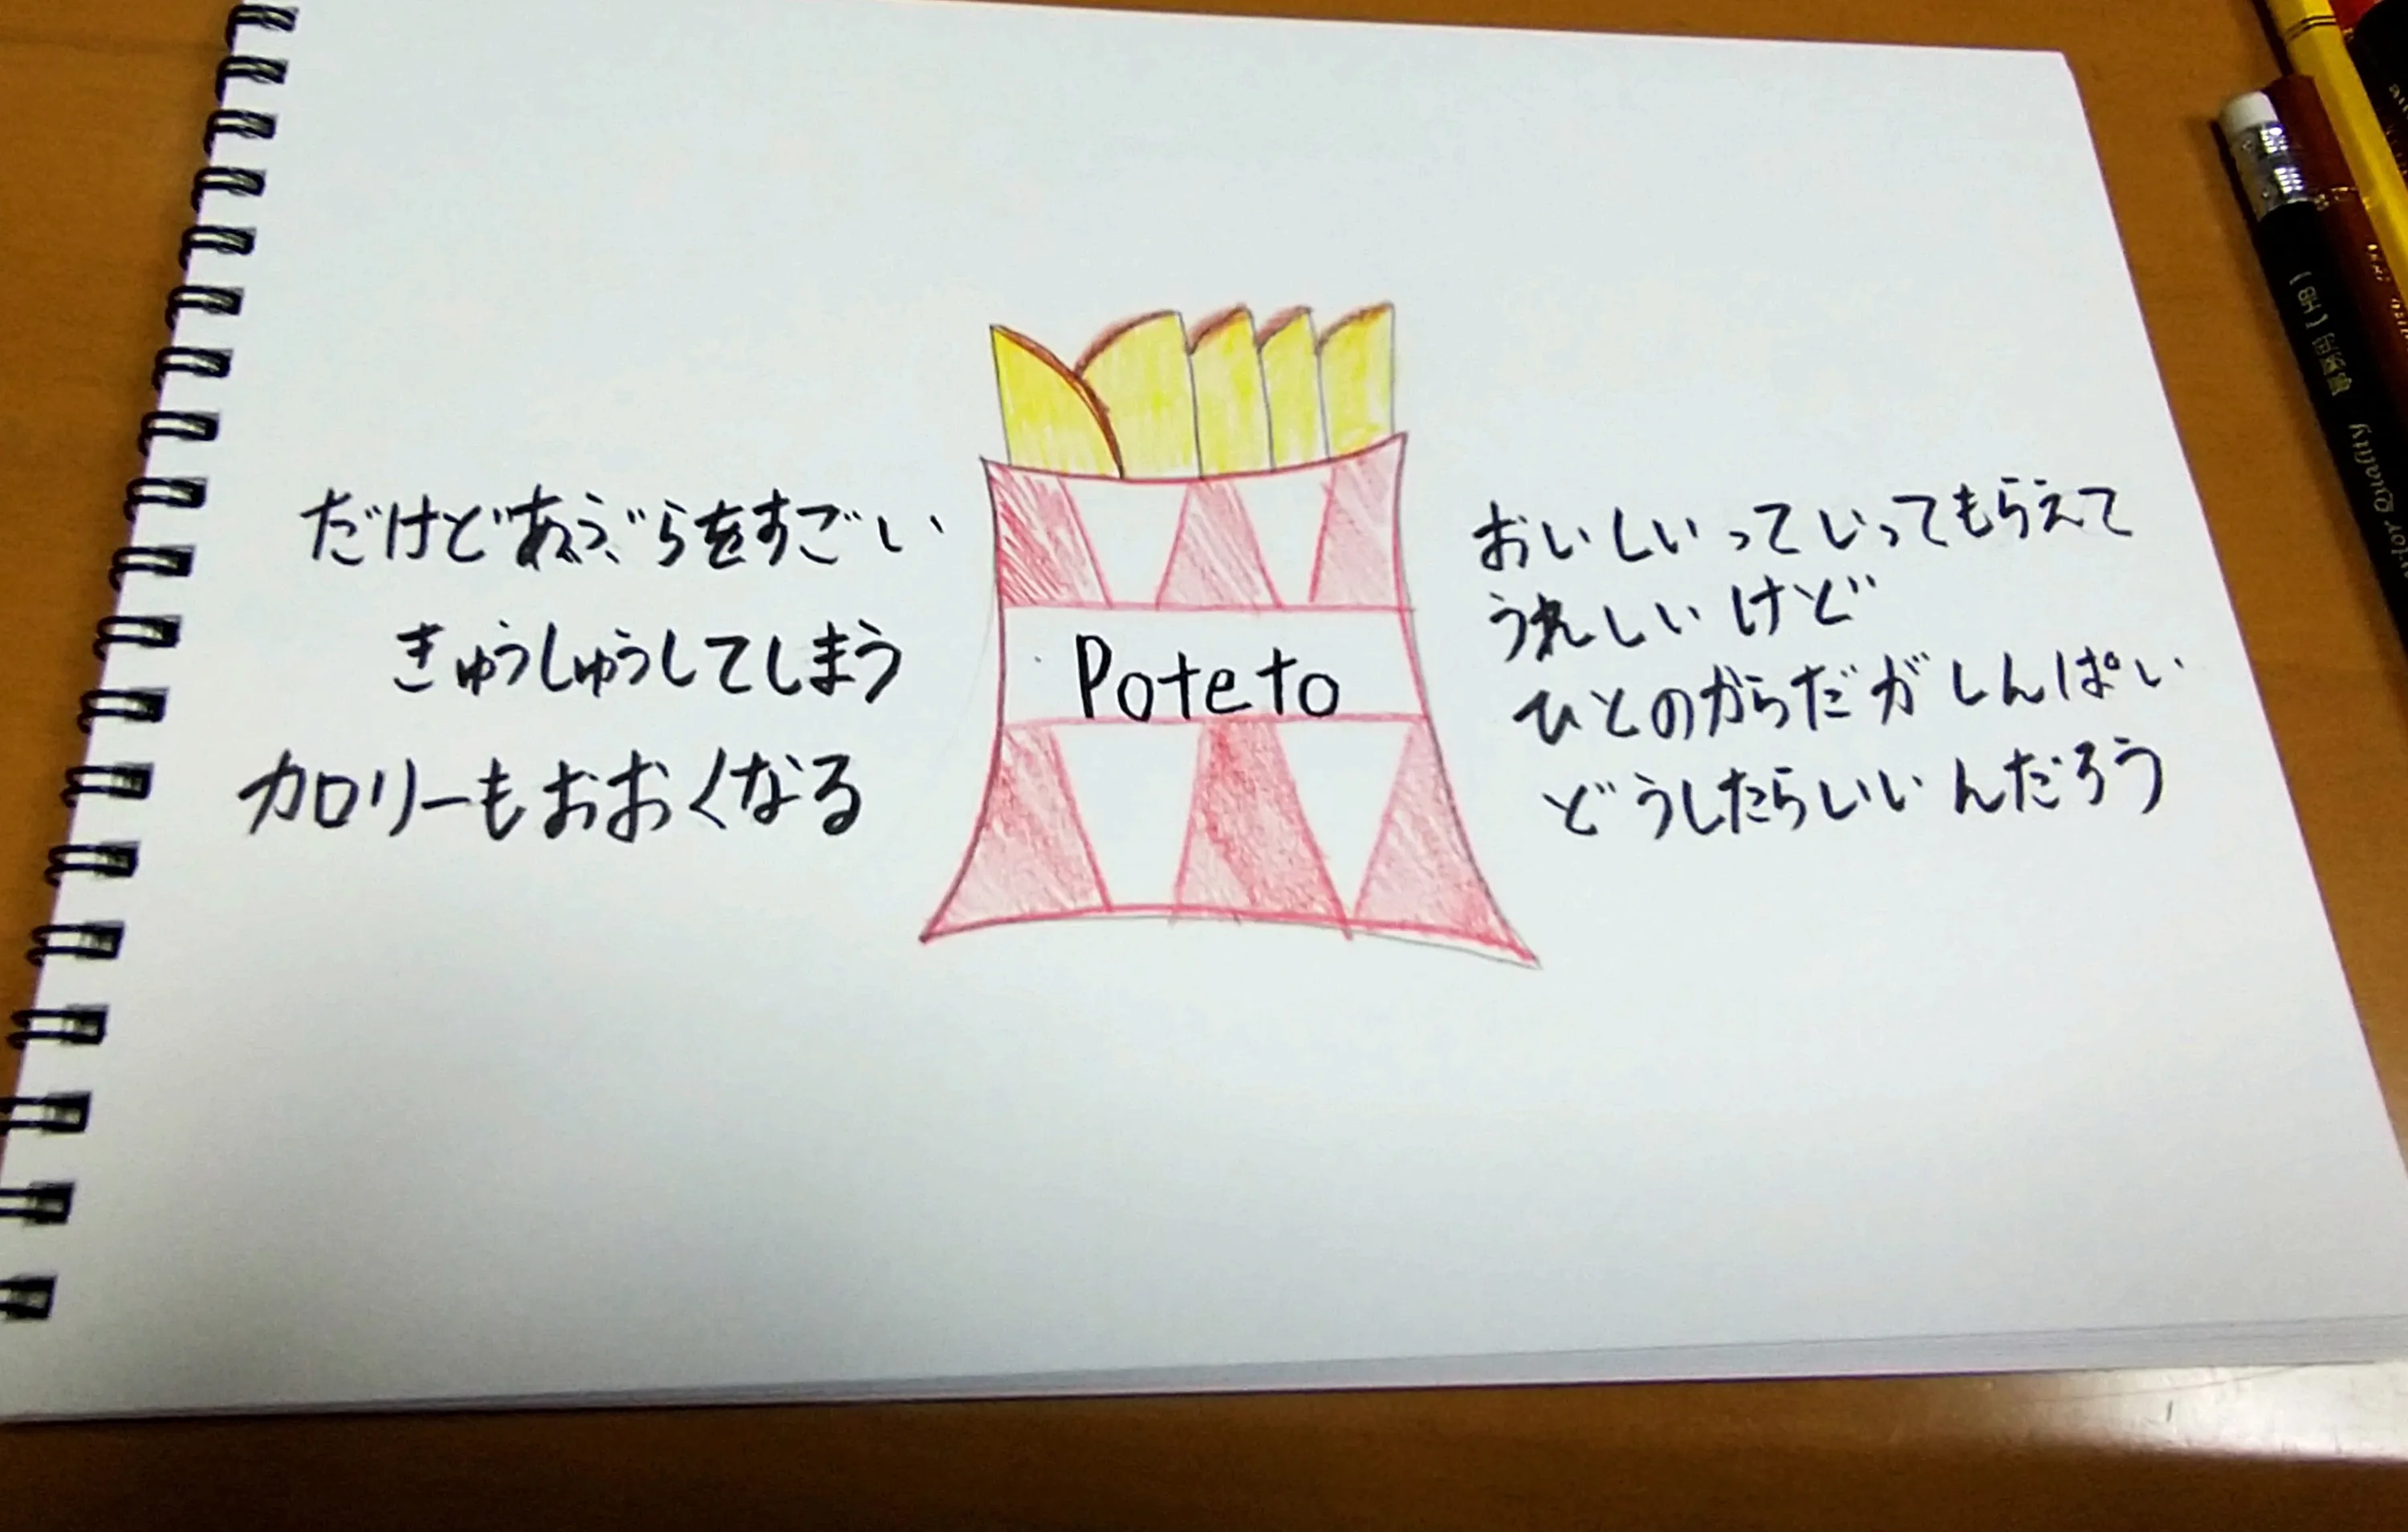 だけどあぶらをすごい
きゅうしゅうしてしまう
カロリーもおおくなる
Poteto
おいしいっていってもらえて
うれしいけど
ひとのからだがしんぱい
どうしたらいいんだろう
HB